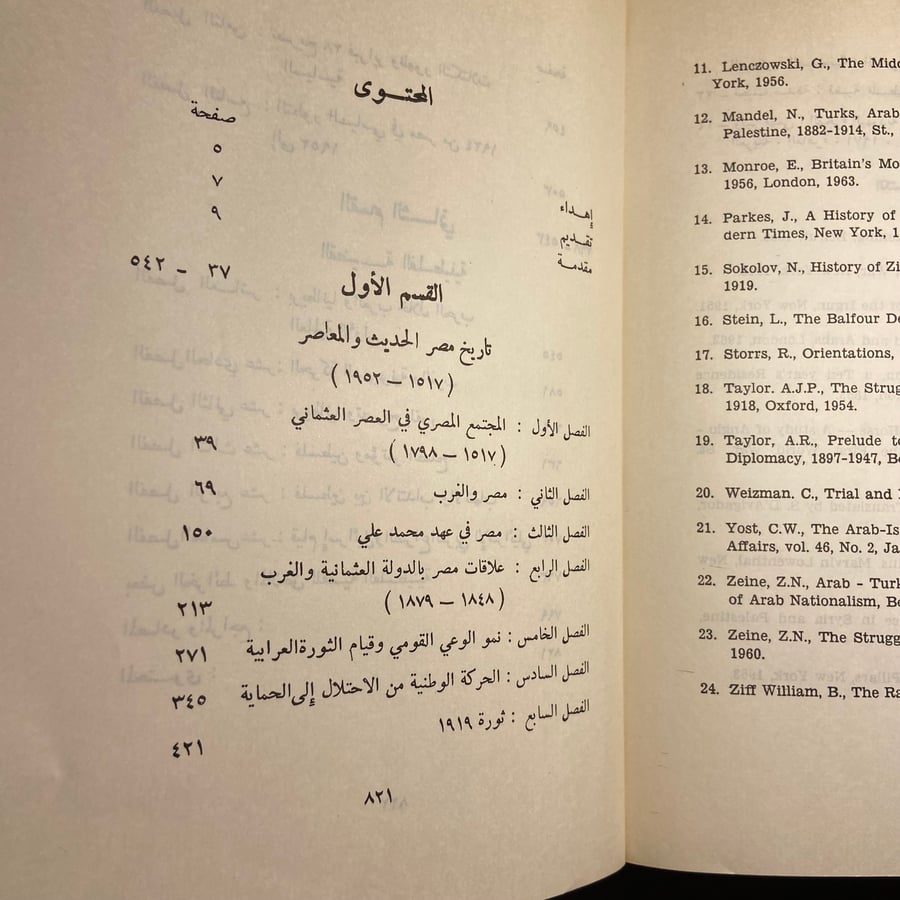 المحتوى
صفحة
إهداء ٥
تقديم ٧
مقدمة ٩
القسم الأول ٣٧ – ٥٤٢
تاريخ مصر الحديث والمعاصر
(١٥١٧ – ١٩٥٢)
الفصل الأول : المجتمع المصري في العصر العثماني
(١٥١٧ – ١٧٩٨) ٣٩
الفصل الثاني : مصر والغرب ٦٩
الفصل الثالث : مصر في عهد محمد علي ١٥٠
الفصل الرابع : علاقات مصر بالدولة العثمانية والغرب
(١٨٤٨ – ١٨٧٩) ٢١٣
الفصل الخامس : نمو الوعي القومي وقيام الثورة العرابية ٢٧١
الفصل السادس : الحركة الوطنية من الاحتلال إلى الحماية ٣٤٥
الفصل السابع : ثورة ١٩١٩ ٤٢١
٨٢١
11. Lenczowski, G., The
York, 1956.
12. Mandel, N., Turks, Arab
Palestine, 1882-1914, St.,
13. Monroe, E., Britain's Mo
1956, London, 1963.
14. Parkes, J., A History of
dern Times, New York, 1
15. Sokolov, N., History of Zi
1919.
16. Stein, L., The Balfour De
17. Storrs, R., Orientations,
18. Taylor. A.J.P., The Strug
1918, Oxford, 1954.
19. Taylor, A.R., Prelude to
Diplomacy, 1897-1947, Be
20. Weizman. C., Trial and
21. Yost, C.W., The Arab-Is
Affairs, vol. 46, No. 2, Ja
22. Zeine, Z.N., Arab - Turk
of Arab Nationalism, Be
23. Zeine, Z.N., The Strugg
1960.
24. Ziff William, B., The Ra